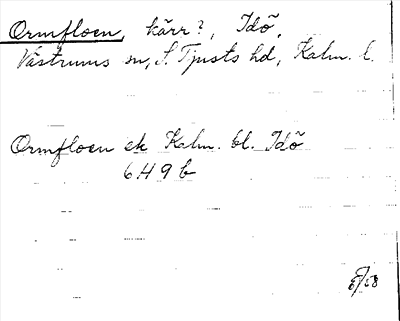 Ormfloen, kärr?, Idö,
Västrums sn, S. Tjusts hd, Kalm. l.
Ormfloen ek Kalm. bl. Idö
6H9b